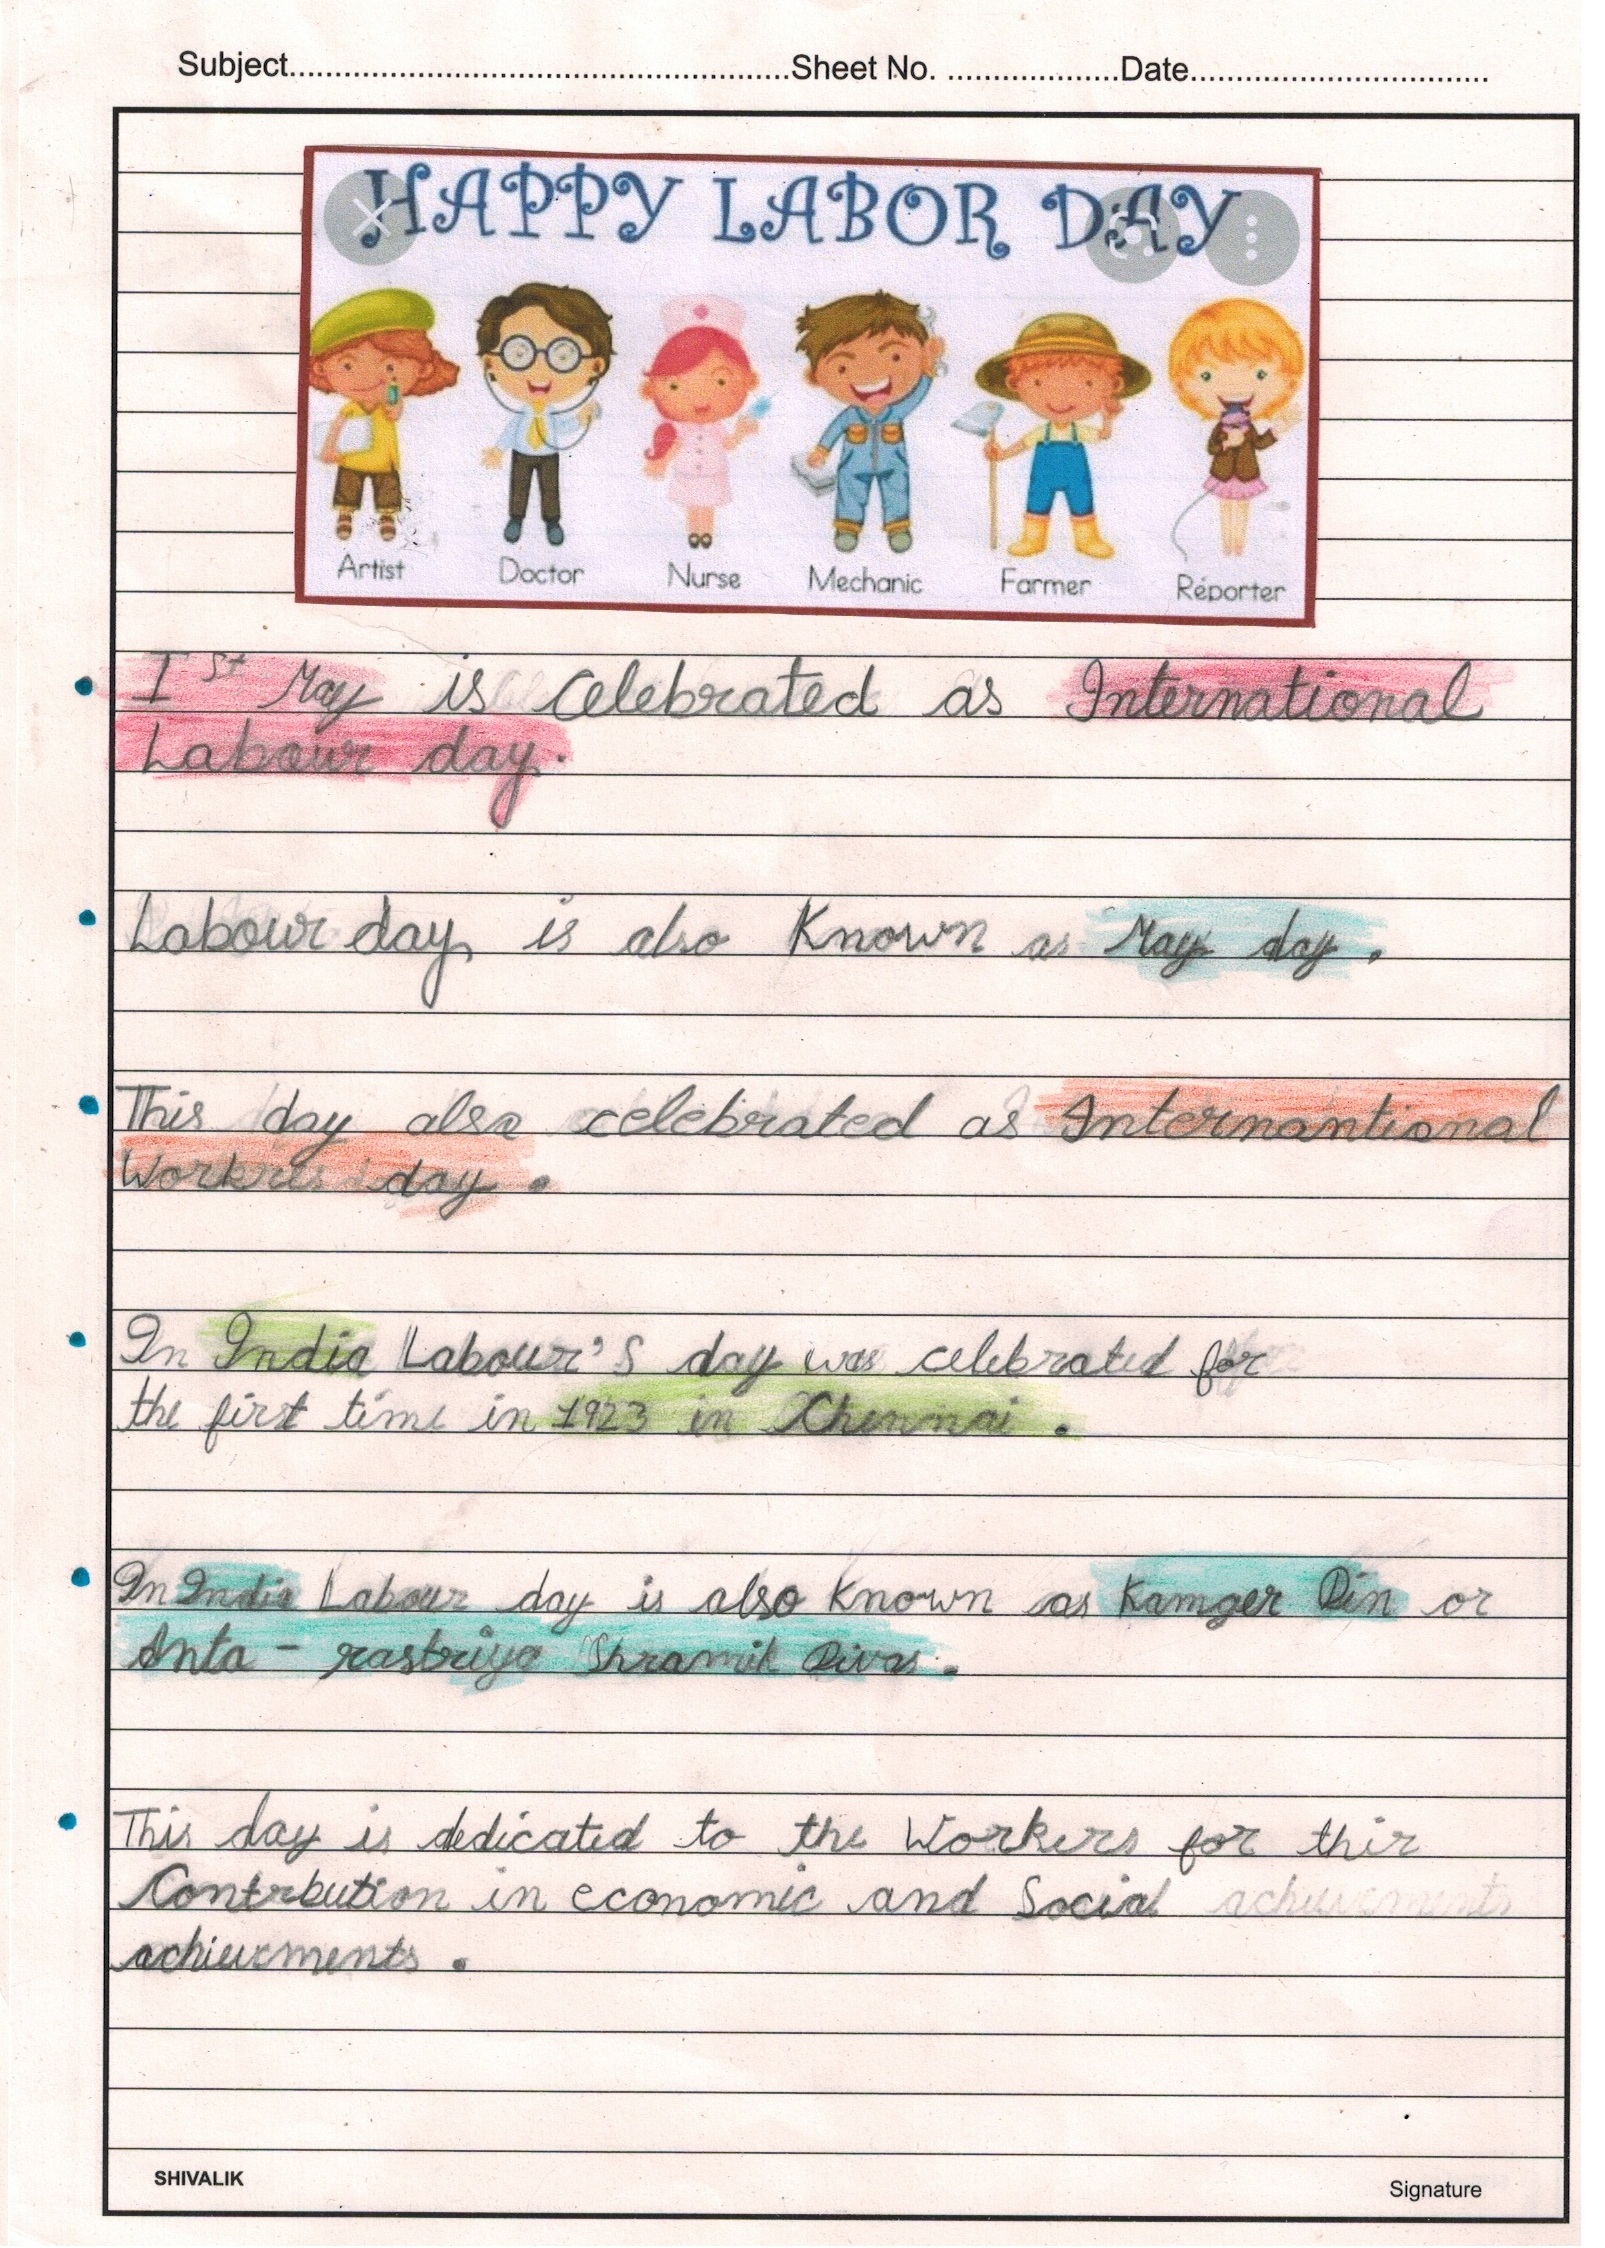 Subject................................................Sheet No. ..................Date................................
HAPPY LABOR DAY
Artist Doctor Nurse Mechanic Farmer Reporter
1st May is celebrated as International
Labour day.
Labour day is also Known as May day.
This day also celebrated as Internantional
Workres day.
In India Labour's day was celebrated for
the first time in 1923 in Chennai.
In India Labour day is also known as Kamger Din or
Anta - rastriya Shramik Divas.
This day is dedicated to the Workers for thir
Contrbution in economic and Social achievments
achievments.
SHIVALIK
Signature